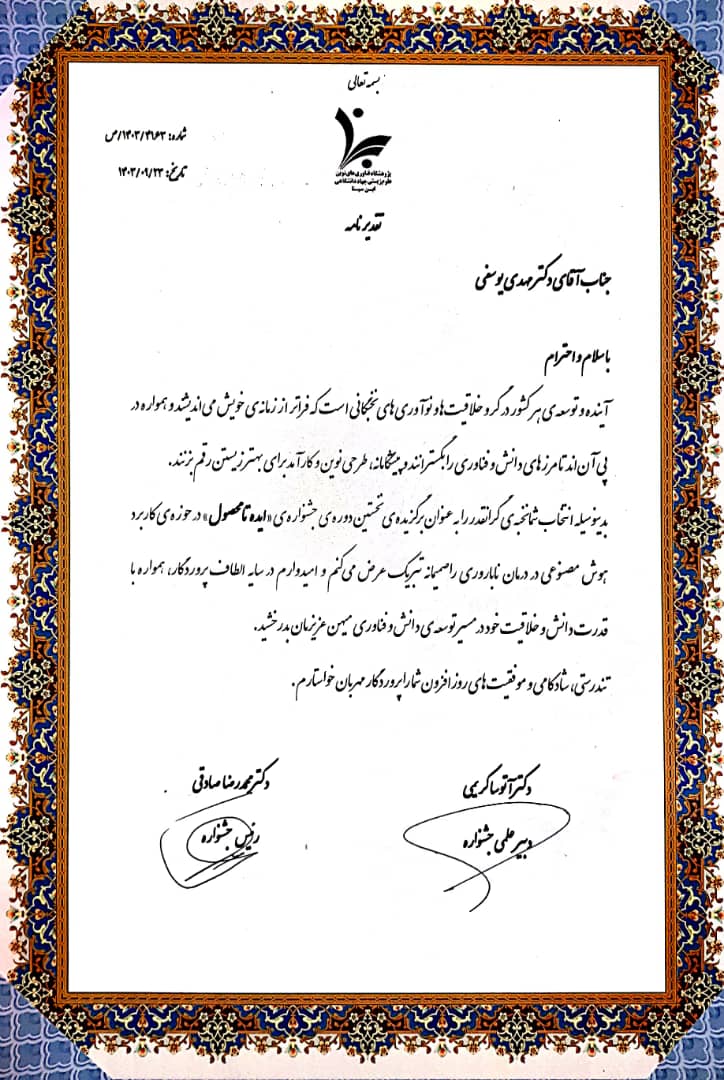 بسمه تعالی
شماره: ۱۴۰۳/۴۱۶۳/ص
تاریخ: ۱۴۰۳/۰۹/۲۳
پژوهشگاه فناوری‌های نوین
علوم زیستی جهاد دانشگاهی
ابن سینا
تقدیرنامه
جناب آقای دکتر مهدی یوسفی
با سلام و احترام
آینده و توسعه‌ی هر کشور در گرو خلاقیت‌ها و نوآوری‌های نخبگانی است که فراتر از زمانه‌ی خویش می‌اندیشند و همواره در
پی آن‌اند تا مرزهای دانش و فناوری را بگسترانند و پیشگامانه، طرحی نوین و کارآمد برای بهتر زیستن رقم بزنند.
بدینوسیله انتخاب شما نخبه‌ی گرانقدر را به عنوان برگزیده‌ی نخستین دوره‌ی جشنواره‌ی «ایده تا محصول» در حوزه‌ی کاربرد
هوش مصنوعی در درمان ناباروری را صمیمانه تبریک عرض می‌کنم و امیدوارم در سایه الطاف پروردگار، همواره با
قدرت دانش و خلاقیت خود در مسیر توسعه‌ی دانش و فناوری میهن عزیزمان بدرخشید.
تندرستی، شادکامی و موفقیت‌های روزافزون شما را از پروردگار مهربان خواستارم.
دکتر آتوسا کریمی
دکتر محمدرضا صادقی
دبیر علمی جشنواره
رئیس جشنواره